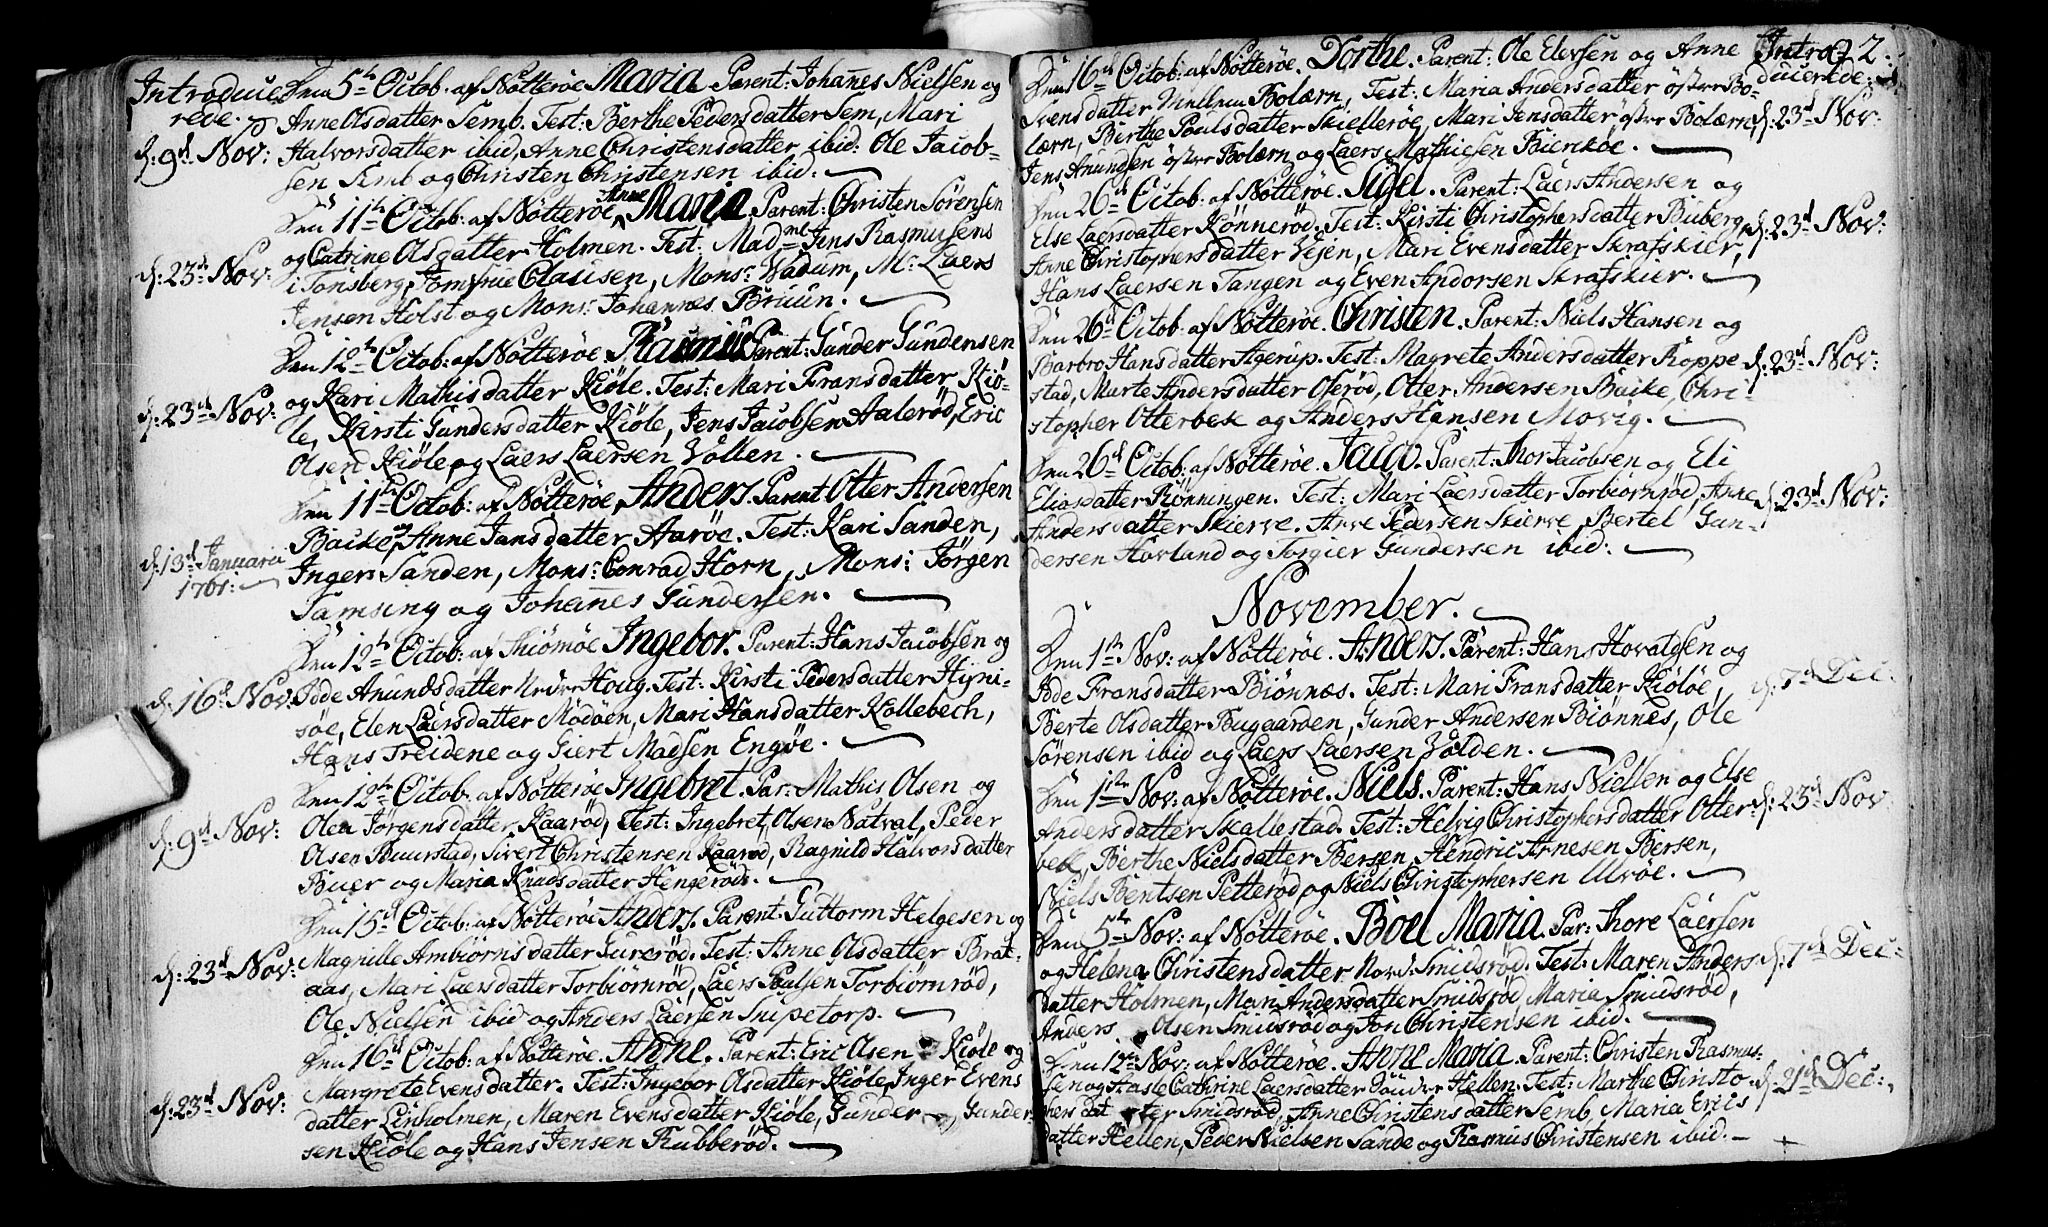 Introduce-
rede.
Den 5te Octob. af Nötteröe Maria. Parent: Johañes Nielsen og
Anne Olsdatter Semb. Test: Berthe Pedersdatter Sem, Mari
d: 9d Nov: Halvorsdatter ibid, Anne Christensdatter ibid: Ole Jacob-
sen Semb og Christen Christensen ibid.
Den 11te Octob: af Nötteröe Anne Maria. Parent: Christen Sörensen
og Catrine Olsdatter Holmen. Test: Madme Jens Rasmusens
d: 23d Nov: i Tönsberg, Jomfrue Clausen, Monsr Wadum, Mr Laers
Jensen Holst og Mons: Johannes Bruun.
Den 12te Octob: af Nötteröe Rasmus Parent: Gunder Gundersen
og Kari Mathisdatter Kiöle. Test: Mari Fransdatter Kiö-
d: 23d Nov: le, Kirsti Gundersdatter Kiöle, Jens Jacobsen Aaleröd, Eric
Olsen Kiöle og Laers Laersen Volten.
Den 11te Octob: af Nötteröe, Anders. Parent Otter Andersen
Backe og Anne Jansdatter Aaröe. Test: Kari Sanden,
d: 13d Januarii Inger Sanden, Mons: Conrad Horn, Mons: Jörgen
1761: Samsing og Johañes Gundersen.
Den 12te Octob: af Thiömöe Ingebor. Parent: Hans Jacobsen og
d: 16d Nov: Jöde Amundsdatter Neder Houg. Test: Kirsti Pedersdatter Hyni-
söe, Elen Laersdatter Mödöen, Mari Hansdatter Kollebech,
Hans Treidene og Siert Madsen Engöe.
Den 12te Octob. af Nötteröe Ingebret. Par: Mathis Olsen og
d: 9d Nov: Olea Jörgensdatter Kaaröd, Test: Ingebret Olsen Natval, Peder
Olsen Buerstad, Sivert Christensen Kaaröd, Ragnild Halvorsdatter
Buer og Maria Knudsdatter Hengeröd.
Den 15d Octob: af Nötteröe Anders. Parent: Guttorm Helgesen og
d: 23d Nov: Magnille Ambiörnsdatter Gureröd. Test: Anne Olsdatter Brat-
aas, Mari Laersdatter Torbiörnröd, Laers Paulsen Torbiörnröd,
Ole Nielsen ibid og Anders Laersen Snipetorp.
Den 16d Octob: af Nötteröe. Anne. Parent: Eric Olsen Kiöle og
Margrete Evensdatter. Test: Ingebor Olsdatter Kiöle, Inger Evens
d: 23d Nov: datter Linholmen, Maren Evensdatter Kiöle, Gunder Gunder-
sen Kiöle og Hans Jensen Rubberöd.
Den 16d Octob: af Nötteröe. Dorthe. Parent: Ole Elevsen og Anne Intro 22.
Svensdatter Mellem Bolærn, Test: Maria Andersdatter öster Bo- ducerede:
lærn, Berthe Poulsdatter Skielleröe, Mari Jensdatter öster Bolærn, d: 23d Nov:
Jens Amundsen öster Bolærn og Laers Mathiesen Bierköe.
Den 26d Octob: af Nötteröe. Sigel. Parent: Laers Andersen og
Else Laersdatter Könneröd. Test: Kirsti Christophersdatter Buberg, d: 23d Nov:
Anne Christophersdatter Vejen, Mari Evensdatter Skrafskier,
Hans Laersen Tangen og Even Andorsen Skrafskier.
Den 26d Octob: af Nötteröe. Christen. Parent: Niels Hansen og
Barbro Hansdatter Agerup. Test: Magrete Andersdatter Roppe d: 23d Nov:
stad, Marte Andersdatter Oseröd, Otter Andersen Backe, Chri-
stopher Otterbek og Anders Hansen Movig.
Den 26d Octob: af Nötteröe. Jaco. Parent: Thor Jacobsen og Eli
Eliasdatter Rönningen. Test: Mari Laersdatter Torbiörnröd, Anne d: 23d Nov:
Andersdatter Skierve. Arve Pedersen Skierve, Bertel Gun-
dersen Hovland og Torgier Gundersen ibid:
November.
Den 1te Nov: af Nötteröe. Anders. Parent: Hans Hovaldsen og
Jöde Fransdatter Biönnes. Test: Mari Fransdatter Kiölöe, d: 7d Dec:
Berte Olsdatter Bugaarden, Gunder Andersen Biönnes, Ole
Sörensen ibid og Laers Laersen Volden.
Den 1te Nov: af Nötteröe. Niels. Parent: Hans Nielsen og Else
Andersdatter Skallestad. Test: Helvig Christophersdatter Otter- d: 23d Nov:
bek, Berthe Nielsdatter Bersen, Hendric Arnesen Bersen,
Niels Bentsen Petteröd og Niels Christophersen Ulvöe.
Den 5te Nov: af Nötteröe. Boel Maria. Par: Thore Laersen
og Helena Christensdatter Nord: Smidsröd. Test: Maren Anders d: 7d Dec:
datter Holmen, Mari Andersdatter Smidsröd, Maria Smidsröd,
Anders Olsen Smidsröd og Jon Christensen ibid.
Den 12te Nov: af Nötteröe. Anne Maria. Parent: Christen Rasmus-
sen og Cathrine Laersdatter Hellen. Test: Marthe Christo d: 21d Dec:
phersdatter Smidsröd, Anne Christensdatter Semb, Maria Erics
datter Hellen, Peder Nielsen Sande og Rasmus Christensen ibid.